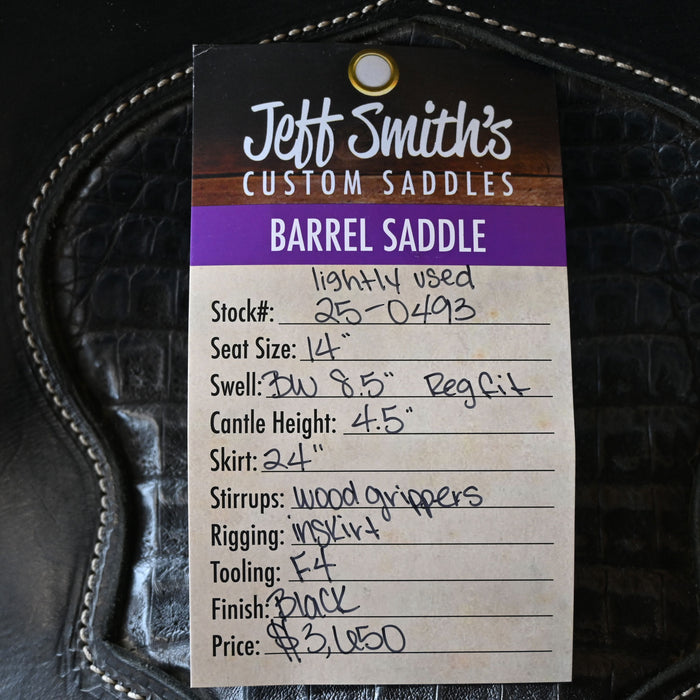 Jeff Smith's
CUSTOM SADDLES
BARREL SADDLE
lightly used
Stock#: 25-0493
Seat Size: 14"
Swell: BW 8.5" Reg fit
Cantle Height: 4.5"
Skirt: 24"
Stirrups: wood grippers
Rigging: inskirt
Tooling: F4
Finish: Black
Price: $3,650